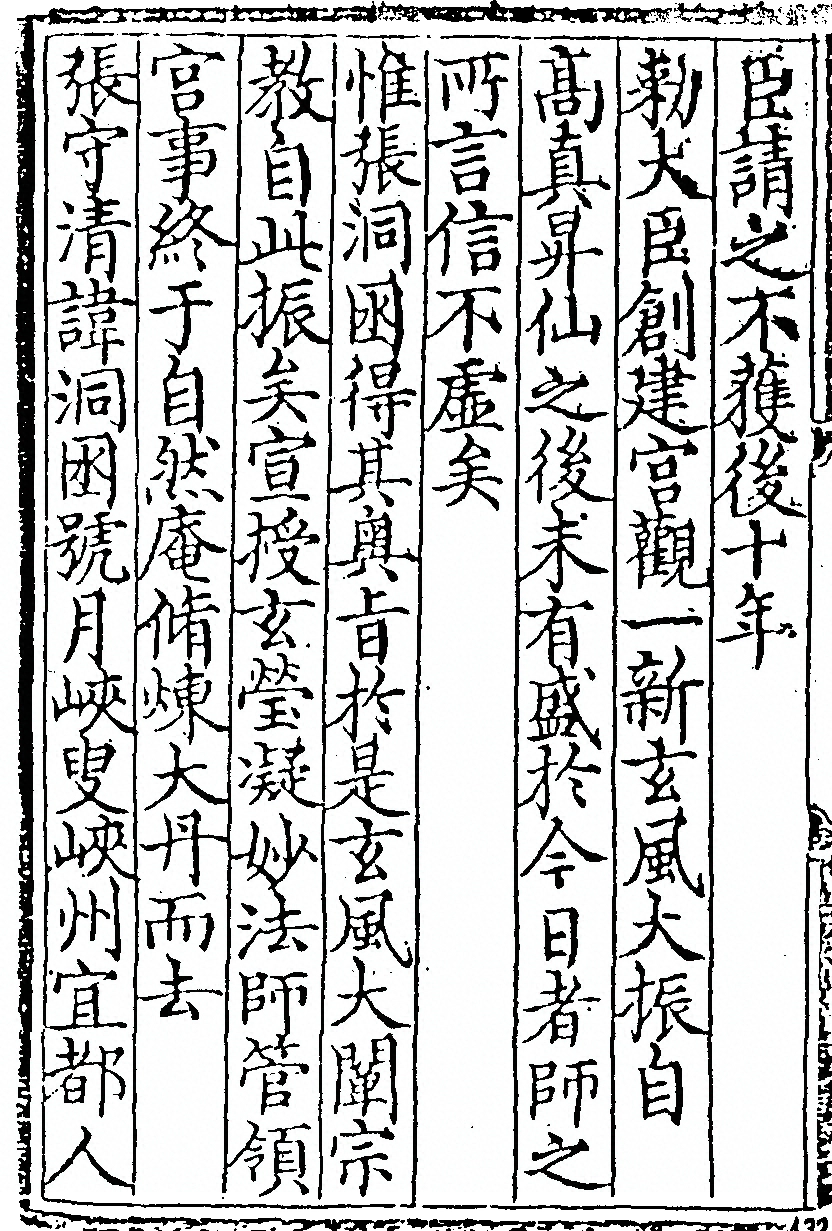 臣請之不獲後十年
勑大臣創建宫觀一新玄風大振自
髙真昇仙之後未有盛於今日者師之
所言信不虛矣
惟張洞囦得其奥旨於是玄風大闡宗
教自此振矣宣授玄瑩凝妙法師管領
宫事終于自然庵脩煉大丹而去
張守清諱洞囦號月峽叟峽州宜都人